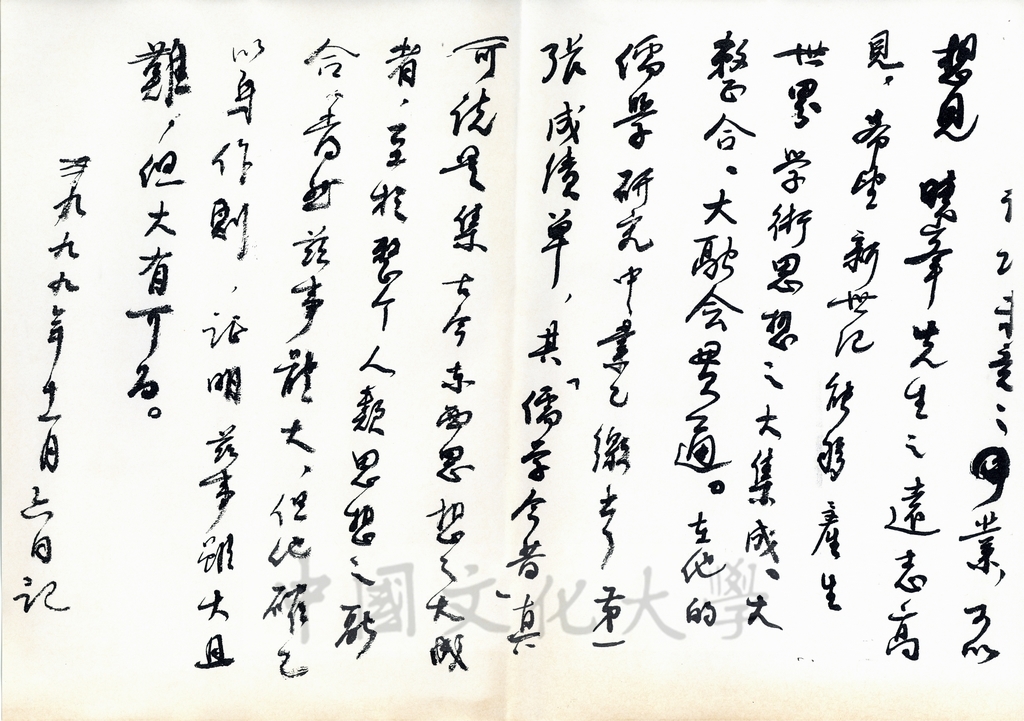 之事業，可以
想見曉峯先生之遠志高
見，希望新世纪能够產生
世界學術思想之大集成、大
整合、大融会貫通。在他的
儒學研究中業已繳出了第一
張成績單，其「儒学今昔」真
可说是集古今东西思想之大成
者，至於整个人類思想之融
合，當然茲事體大，但他確已
以身作則，証明茲事雖大且
難，但大有可為。
一九九九年十一月六日記
中國文化大學